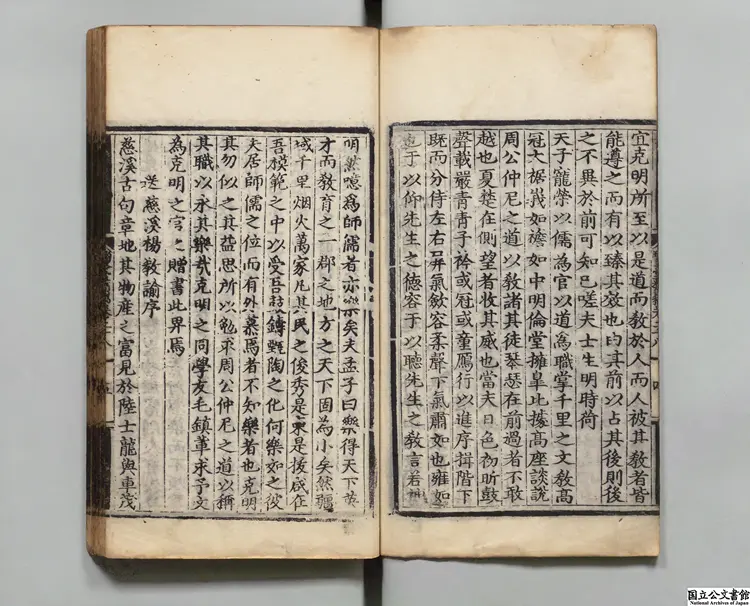 宜克明所至以是道而教於人而人被其教者皆
能遵之而有以臻其效也的其前以占其後則後
之不異於前可知已嗟夫士生明時荷
天子寵榮以儒為官以道為職掌千里之文教高
冠大裾峩如襜如中明倫堂擁臯比據髙座談説
周公仲尼之道以教諸其徒琴瑟在前過者不敢
越也夏楚在側望者收其威也當夫日色初昕鼓
聲載嚴青青子衿或冠或童鴈行以進序揖階下
既而分侍左右屏氣歛容柔聲下氣肅如也雍如
也于以仰先生之德容于以聽先生之教言若
明然噫為師儒者亦樂矣夫孟子曰樂得天下英
才而教育之一郡之地方之天下固為小矣然疆
域千里烟火萬家凡其民之俊秀是東是拔咸在
吾模範之中以受吾鑄甄陶之化何樂如之彼
夫居師儒之位而有外慕焉者不知樂者也克明
其勿似之其益思所以勉求周公仲尼之道以稱
其職以永其樂哉克明之同學友毛鎮革求予文
為克明之官之贈書此畀焉
送慈溪楊教諭序
慈溪古句章地其物産之富見於陸士龍與車茂
国立公文書館
National Archives of Japan